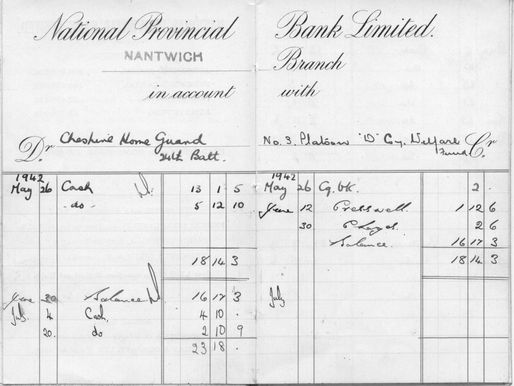 National Provincial Bank Limited.
NANTWICH Branch
in account with
Dr Cheshire Home Guard No. 3. Platoon "D" Coy. Welfare Cr
24th Batt. Fund
1942 1942
May 26 Cash 13 1 5 May 26 Cq. bk. 2 .
do. 5 12 10 June 12 Presswell. 1 12 6
30 2 6
Balance. 16 17 3
18 14 3 18 14 3
June 30 Balance 16 17 3 July
July 4 Cash 4 10 .
20. do 2 10 9
23 18 .